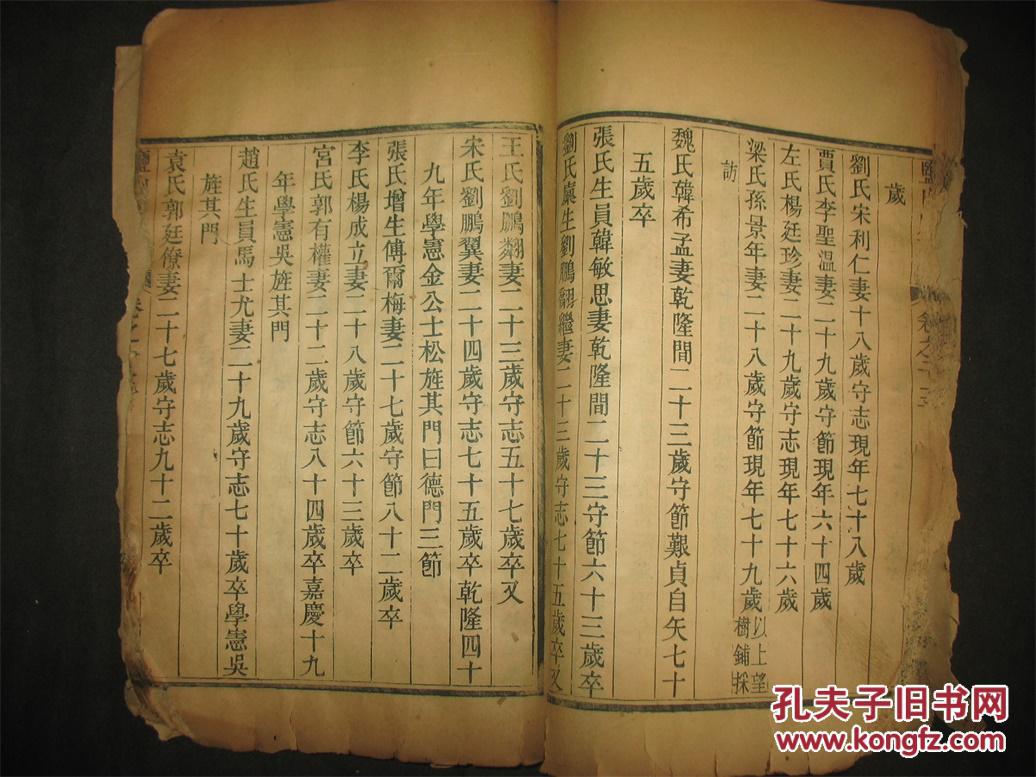 歲
劉氏宋利仁妻十八歲守志現年七十八歲
賈氏李聖溫妻二十九歲守節現年六十四歲
左氏楊廷珍妻二十九歲守志現年七十六歲
梁氏孫景年妻二十八歲守節現年七十九歲以上望樹鋪採
訪
魏氏韓希孟妻乾隆間二十三歲守節艱貞自矢七十
五歲卒
張氏生員韓敏思妻乾隆間二十三守節六十三歲卒
劉氏廩生劉鵬翮繼妻二十三歲守志七十五歲卒又
王氏劉鵬翽妻二十三歲守志五十七歲卒又
宋氏劉鵬翼妻二十四歲守志七十五歲卒乾隆四十
九年學憲金公士松旌其門曰德門三節
張氏增生傅爾梅妻二十七歲守節八十二歲卒
李氏楊成立妻二十八歲守節六十三歲卒
宮氏郭有權妻二十二歲守志八十四歲卒嘉慶十九
年學憲吳旌其門
趙氏生員馬士尤妻二十九歲守志七十歲卒學憲吳
旌其門
袁氏郭廷僚妻二十七歲守志九十二歲卒
孔夫子旧书网
www.kongfz.com